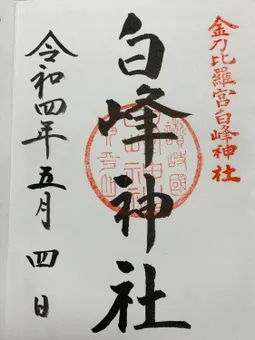 金刀比羅宮白峰神社
白峰神社
令和四年五月四日